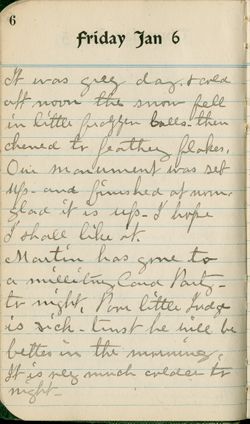 6
Friday Jan 6
It was grey day. & cold
aft noon the snow fell
in little frozzen balls. then
chened to feathery flakes.
Our monument was set
up - and finished at noon.
glad it is up - I hope
I shall like it.
Martin has gone to
a millitary Card Party -
to night. Poor little Judge
is sick - trust he will be
better in the morning.
It is very much colder to
night -